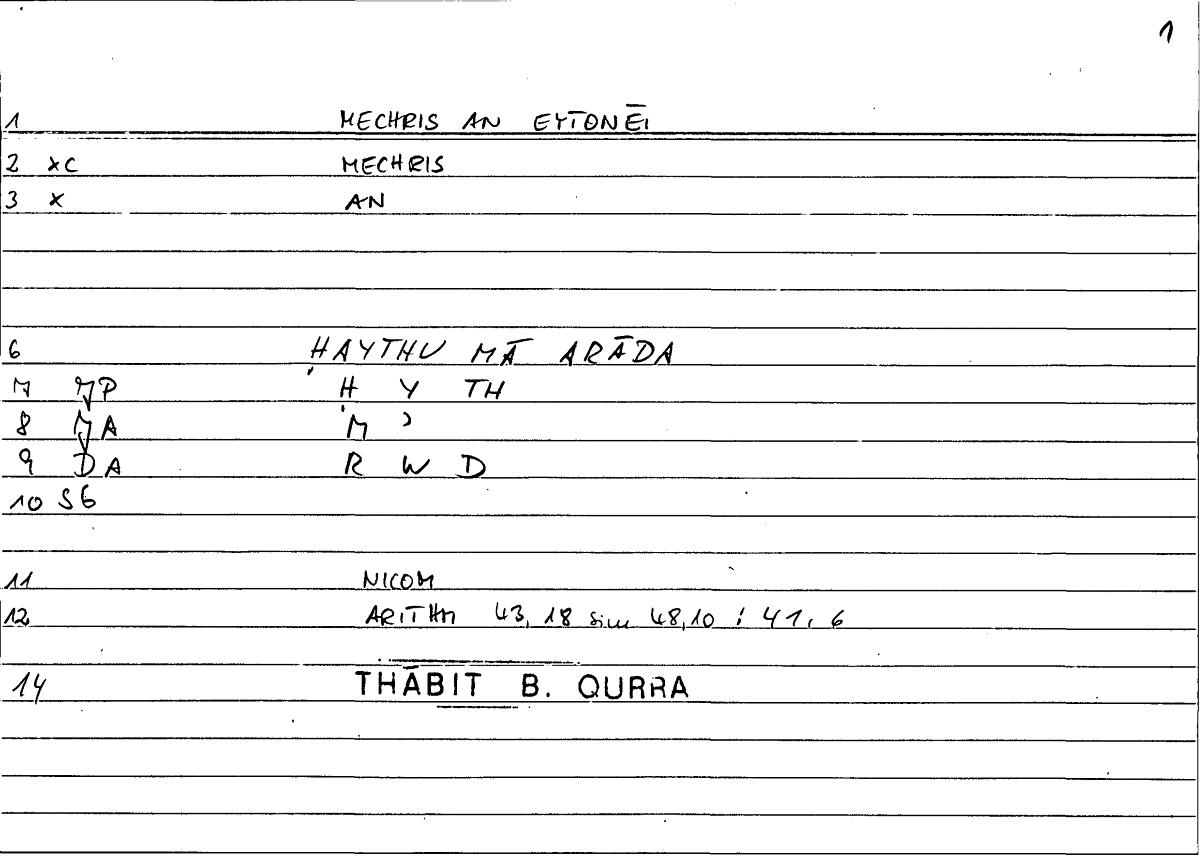 1
1 MECHRIS AN EYTONĒI
2 xC MECHRIS
3 x AN
6 ḤAYTHU MĀ ARĀDA
7 JP Ḥ Y TH
8 JA M ʾ
9 DA R W D
10 SG
11 NICOM
12 ARITHM 43, 18 sim 48,10 : 41, 6
14 THĀBIT B. QURRA